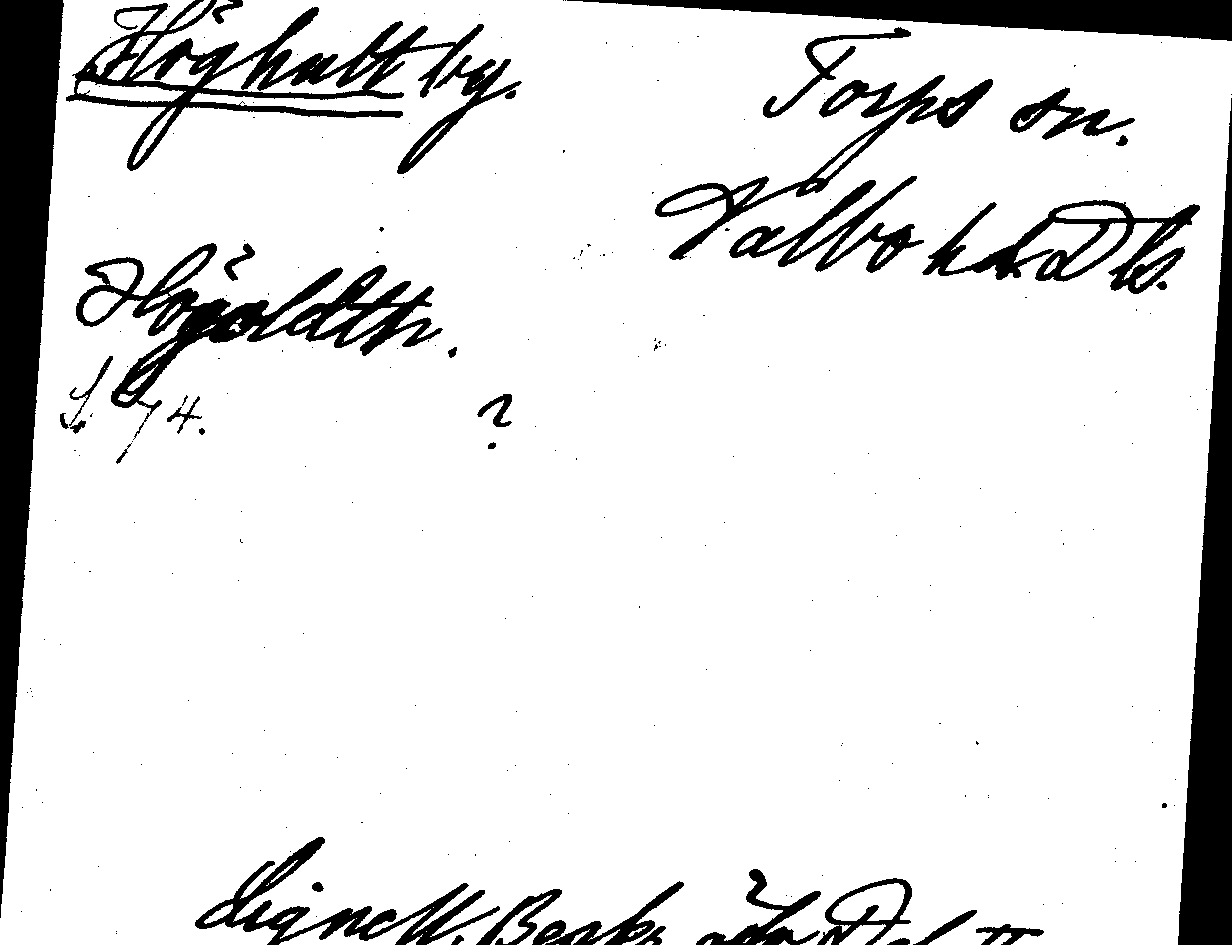 Höghult by.
Torps sn.
Valbo hd Dls.
Högoldth.
S. 74. ?
Lignell, Beskr. öfv. Dal II